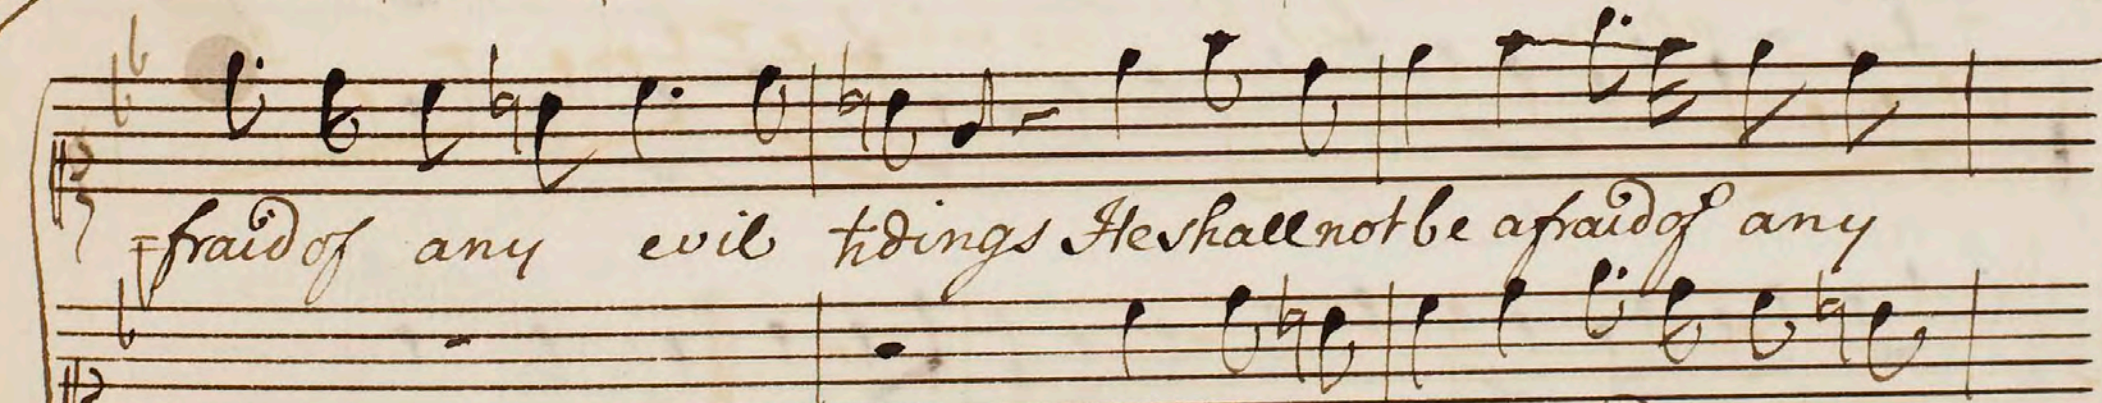 =fraid of any evil tidings He shall not be afraid of any